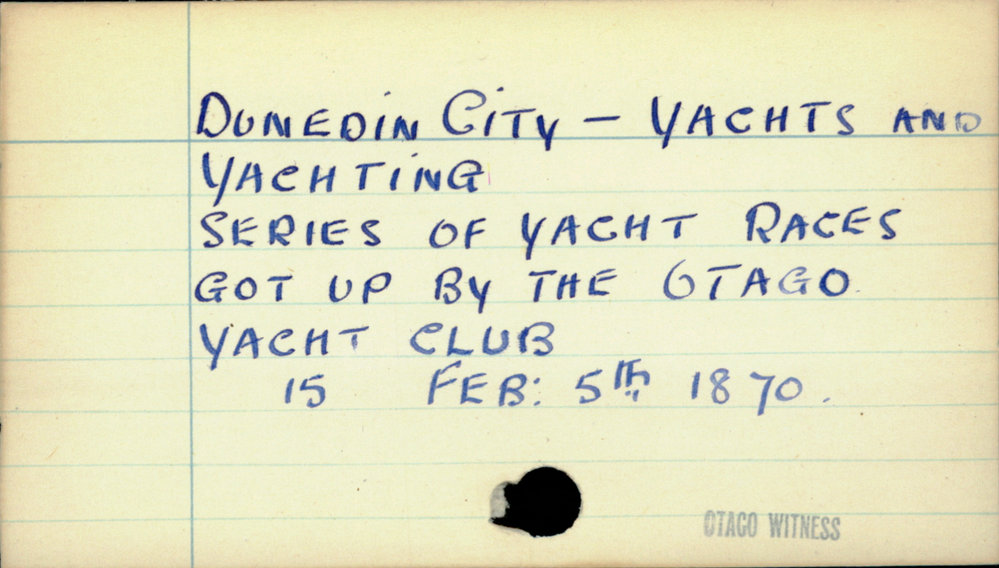 DUNEDIN CITY – YACHTS AND
YACHTING
SERIES OF YACHT RACES
GOT UP BY THE OTAGO
YACHT CLUB
15 FEB: 5th 1870.
OTAGO WITNESS